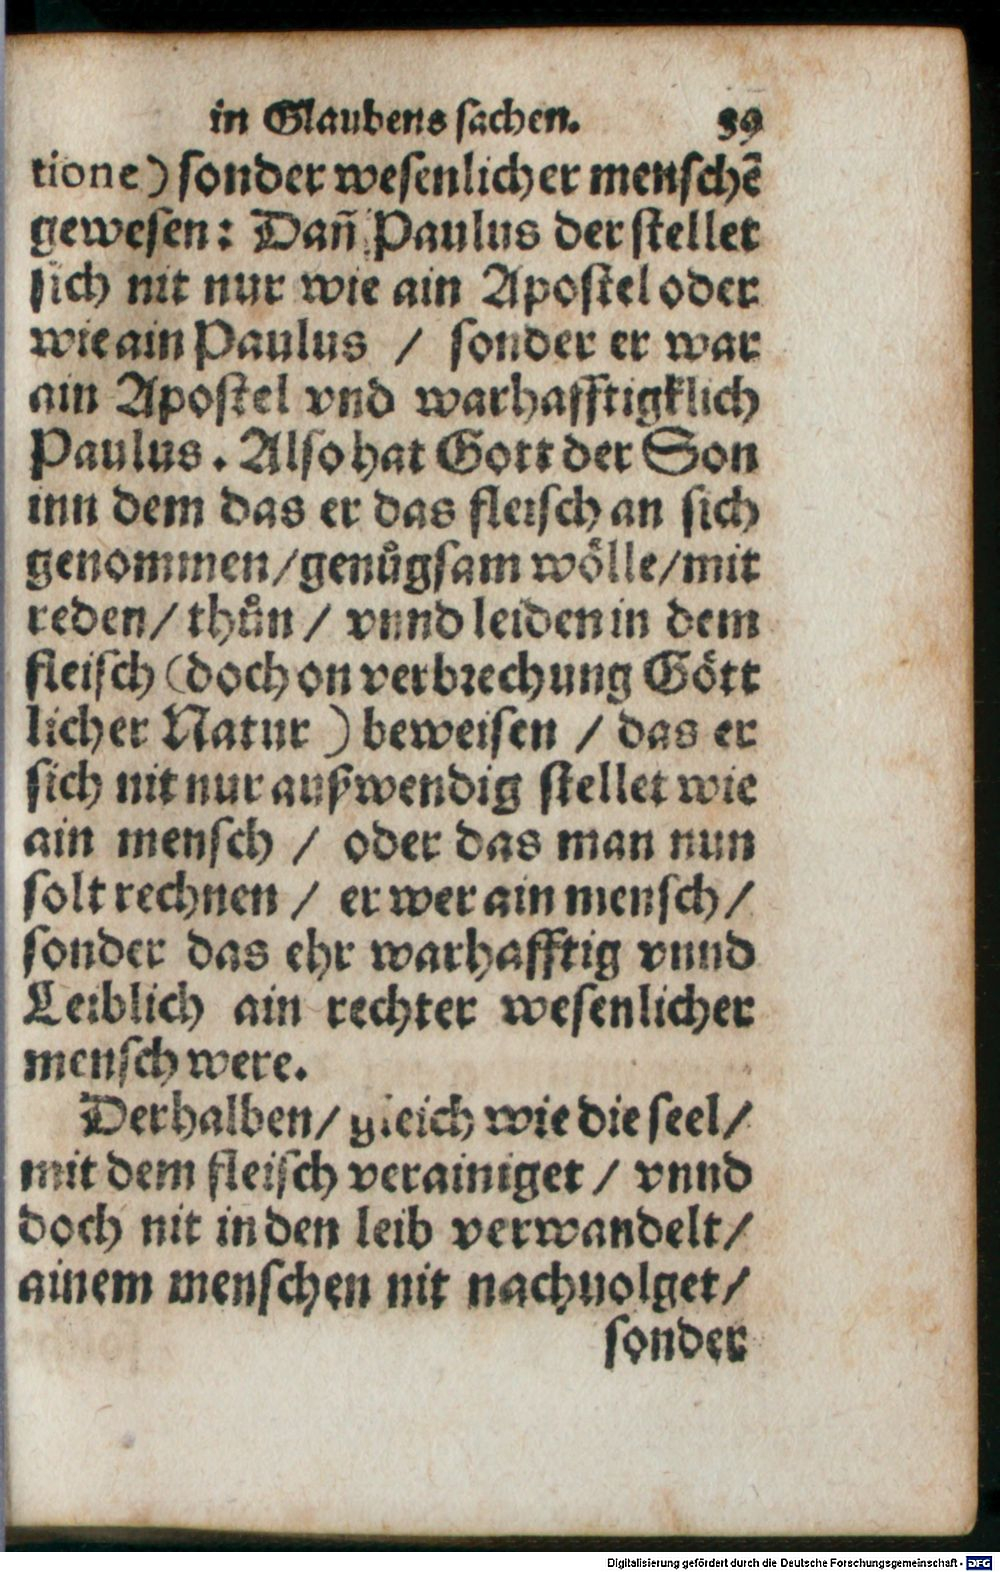 in Glaubens sachen. 39
tione) sonder wesenlicher menschē
gewesen: Dañ Paulus der stellet
sich nit nur wie ain Apostel oder
wie ain Paulus / sonder er war
ain Apostel vnd warhafftigklich
Paulus. Also hat Gott der Son
inn dem das er das fleisch an sich
genommen/genůgsam wölle/mit
reden/ thůn / vnnd leiden in dem
fleisch (doch on verbrechung Gött
licher Natur) beweisen / das er
sich nit nur außwendig stellet wie
ain mensch / oder das man nun
solt rechnen / er wer ain mensch/
sonder das ehr warhafftig vnnd
Leiblich ain rechter wesenlicher
mensch were.
Derhalben/ gleich wie die seel/
mit dem fleisch verainiget / vnnd
doch nit in den leib verwandelt/
ainem menschen nit nachuolget/
sonder
Digitalisierung gefördert durch die Deutsche Forschungsgemeinschaft - DFG